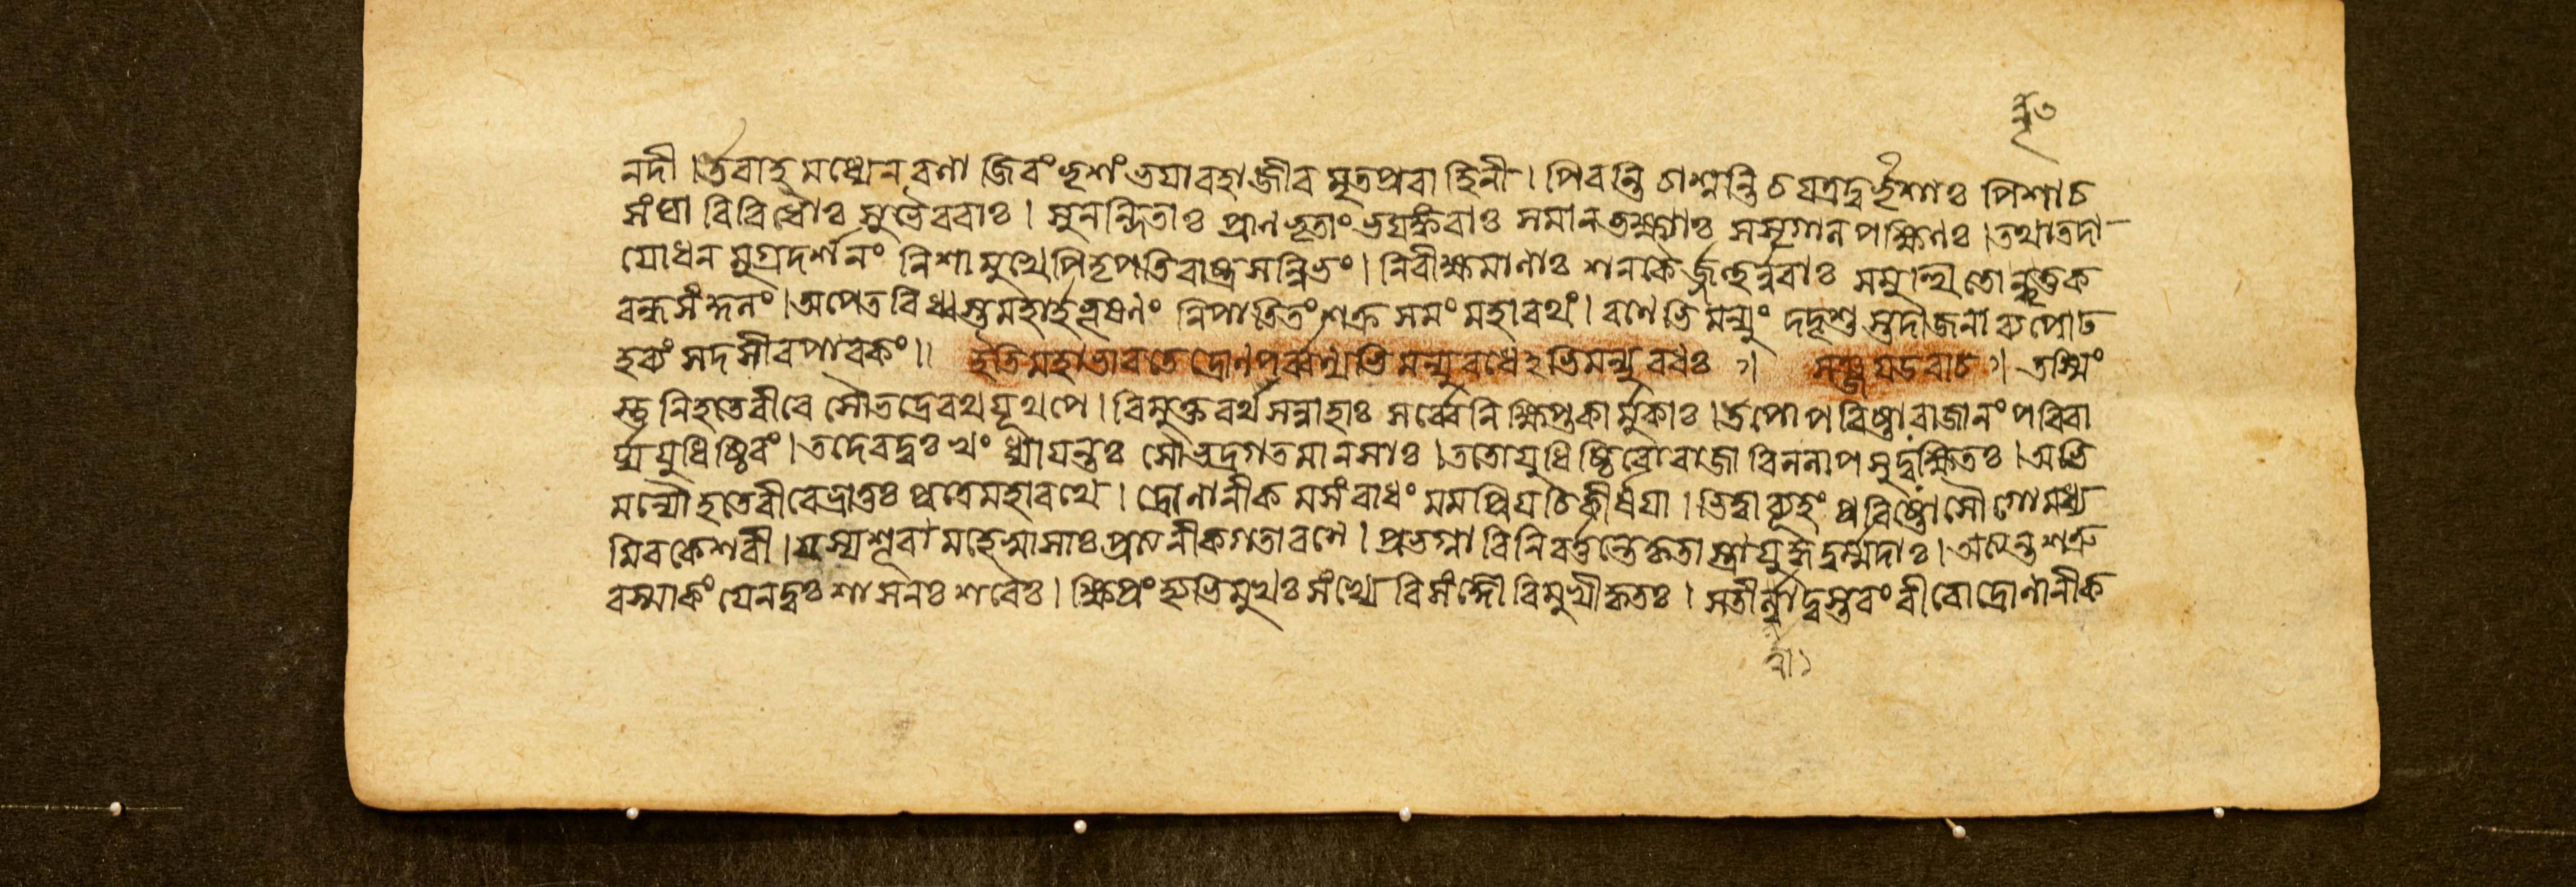 র্নৃত
নদী । উবাহ মধ্যেন ৰণাজিৰং ভৃশং ভয়াবহা জীব মৃতপ্রবাহিনী । পিবন্তি চাশ্নন্তি চ যত্রদুর্দৃশাঃ পিশাচ
সংঘা বিবিধাঃ সুভৈৰবাঃ । সুনন্দিতাঃ প্রানভৃতাং ভয়ঙ্কৰাঃ সমানভক্ষ্যাঃ সসৃগাল পক্ষিণঃ । তথাতদা
যোধন মুগ্রদর্শনং নিশামুখে পিতৃপতিৰাষ্ট্রসন্নিভং । নিৰীক্ষমাণাঃ শনকৈর্জহুর্নৰাঃ সমুত্থিতো নৃত্তক
বন্ধসংঙ্কুলং । অপেত বিধ্বস্তমহার্হভূষণং নিপাতিতং শক্র সমং মহাৰথং । ৰণেভিমন্যুং দদৃশু স্তদাজনা ব্যপোঢ
হব্যং সদসীবপাবকং ॥ ইতিমহাভাৰতে দ্রোণপর্ব্বণ্যভিমন্যুবধে২ভিমন্যুবধঃ । সঞ্জয়উবাচ । তস্মিং
স্তু নিহতেবীৰে সৌভদ্রেৰথযূথপে । বিমুক্তৰথসন্নাহাঃ সর্ব্বেনিক্ষিপ্তকার্মুকাঃ । উপোপবিষ্টাৰাজানং পৰিবা
র্য্যযুধিষ্ঠিৰং । তদেবদুঃখং ধ্যায়ন্তঃ সৌভদ্রগতমানসাঃ । ততোযুধিষ্ঠিৰোৰাজা বিললাপ সুদুঃক্ষিতঃ । অভি
মন্যৌহতেবীৰেভ্রাতুঃ পুত্রেমহাৰথে । দ্রোণানীক মসংবাধং মমপ্রিয়চিকীর্ষয়া । ভিত্বাব্যূহং প্রবিষ্টোসৌ গোমধ্য
মিবকেশৰী । যস্যশূৰা মহেষ্বাসাঃ প্রত্যনীকগতাৰণে । প্রভগ্না বিনিবর্ত্তন্তেকৃতাস্ত্রাযুদ্ধদুর্ম্মদাঃ । অত্যন্তশত্রু
ৰস্মাকং যেনদুঃশাসনঃ শৰৈঃ । ক্ষিপ্রং হ্যভিমুখঃ সংখ্যে বিসংজ্ঞো বিমুখীকৃতঃ । সতীর্ত্বাদুস্তৰং বীৰোদ্রোণানীক